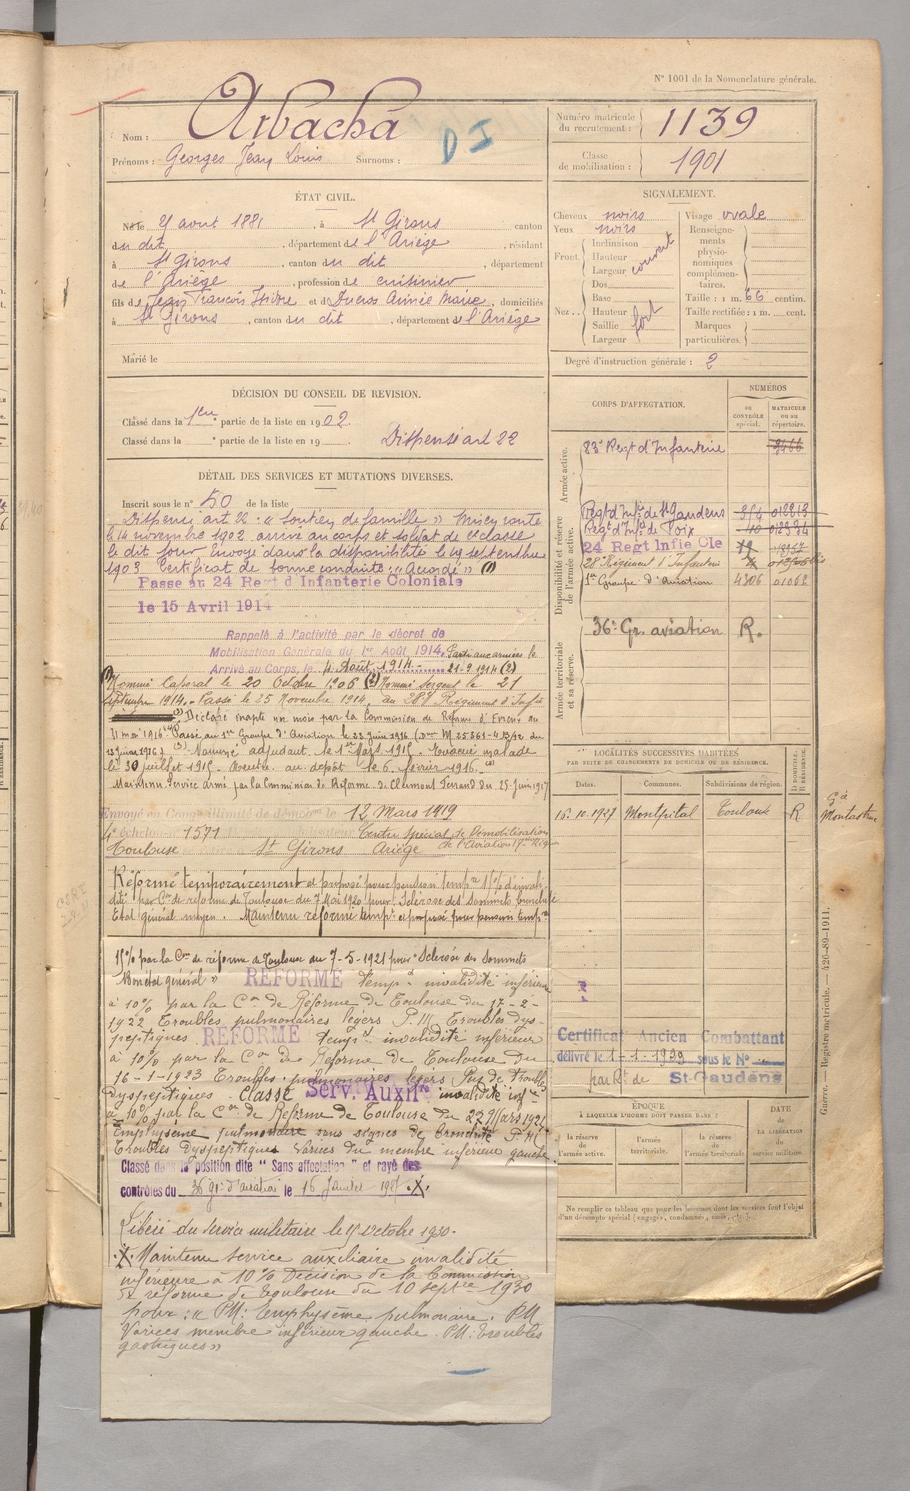 N° 1001 de la Nomenclature générale.
Nom : Arbacha
D I
Prénoms : Georges Jean Louis Surnoms :
Numéro matricule du recrutement : 1139
Classe de mobilisation : 1901
ÉTAT CIVIL.
Né le 9 aout 1881, à St Girons canton
du dit, département de l'Ariège, résidant
à St Girons, canton du dit, département
de l'Ariège, profession de cuisinier
fils de Jean François Isidre et de Anne Marie, domiciliés
à St Girons, canton du dit, département de l'Ariège
Marié le
SIGNALEMENT.
Cheveux noirs
Yeux noirs
Front : Inclinaison Hauteur Largeur couvert
Nez : Dos Base Hauteur Saillie Largeur fort
Visage ovale
Renseignements physionomiques complémentaires.
Taille : 1 m. 66 centim.
Taille rectifiée : 1 m. cent.
Marques particulières.
Degré d'instruction générale : 2
DÉCISION DU CONSEIL DE REVISION.
Classé dans la 1ere partie de la liste en 1902.
Classé dans la partie de la liste en 19
Dispensé art 22
DÉTAIL DES SERVICES ET MUTATIONS DIVERSES.
Inscrit sous le n° 50 de la liste
Dispensé art 22 : « Soutien de famille » Mis en route
le 14 novembre 1902 arrivé au corps et soldat de 2e classe
le dit jour Envoyé dans la disponibilité le 19 septembre
1903 Certificat de bonne conduite : « Accordé » (1)
Passé au 24 Regt d'Infanterie Coloniale
le 15 Avril 1914
Rappelé à l'activité par le décret de
Mobilisation Générale du 1er Août 1914. Parti aux armées le
Arrivé au Corps, le Août 1914 21-9-1914 (2)
Nommé Caporal le 20 Octobre 1906 (2) Nommé Sergent le 21
septembre 1914. Passé le 25 Novembre 1914, au 287 Régiment d'Infie
(3) Déclaré inapte un mois par la Commission de Réforme d'Evreux du
11 mai 1916 Passé au 1er Groupe d'Aviation le 23 Juin 1916
(3) Nommé adjudant, le 1er 1915. Evacué malade
le 30 juillet 1915. au dépôt le 6 février 1916.
Maintenu Service armé par la Commission de Réforme de Clermont Ferrand du 25 Juin 1917
Envoyé en Congé illimité de démob le 12 Mars 1919
4e échelon n° 1571 Centre Spécial de Démobilisation
Toulouse St Girons Ariège de l'Aviation
Réformé temporairement et proposé pour pension tempre
dité par Con de réforme de Toulouse du 7 Mai 1920 pour Sclérose des Sommets
Etat général moyen. Maintenu réformé tempre et proposé pour pension tempre
15% par la Con de réforme de Toulouse du 7-5-1921 pour Sclérose des Sommets
Bon état général » RÉFORMÉ temp invalidité inférieure
à 10% par la Con de Réforme de Toulouse du 17-2-
1922 Troubles pulmonaires légers P.M Troubles dys-
peptiques RÉFORMÉ temp invalidité inférieure
à 10% par la Con de Réforme de Toulouse du
16-1-1923 Troubles pulmonaires légers Troubles
dyspeptiques. classé Serv. Auxil invalidité infre
à 10% par la Con de Réforme de Toulouse du
Emphysème pulmonaire sans signes de bronchite P M
Troubles dyspeptiques Varices du membre inférieur gauche
Classé dans la position dite " Sans affectation " et rayé des
contrôles du 36 gr. d'aviation le 16 janvier
Libéré du service militaire le 15 Octobre 1930.
.X. Maintenu service auxiliaire invalidité
inférieure à 10% Décision de la Commission
de réforme de Toulouse du 10 septre 1930
pour : « PM : Emphysème pulmonaire. PM
Varices membre inférieur gauche. PM : troubles
gastriques »
CORPS D'AFFECTATION.
NUMÉROS
DE CONTRÔLE spécial.
MATRICULE ou au répertoire.
Armée active.
83e Regt d'Infanterie
Disponibilité et réserve de l'armée active.
Regt d'Inf. de St Gaudens
Regt d'Inf. de Foix
24 Regt Infie Cle
28 Régiment d'Infanterie
1er Groupe d'Aviation 4306 01062
Armée territoriale et sa réserve.
36e Gr. aviation R.
LOCALITÉS SUCCESSIVES HABITÉES
PAR SUITE DE CHANGEMENTS DE DOMICILE OU DE RÉSIDENCE.
Dates. Communes. Subdivisions de région. D DOMICILE R RÉSIDENCE.
16.10.1927 Montpitol Toulouse R
Montastruc
Certificat Ancien Combattant
délivré le 1-1-1932 sous le N°
par Ct de St-Gaudens
ÉPOQUE
À LAQUELLE L'HOMME DOIT PASSER DANS :
la réserve de l'armée active.
l'armée territoriale.
la réserve de l'armée territoriale.
DATE DE LA LIBÉRATION du service militaire.
Ne remplir ce tableau que pour les hommes dont les services font l'objet d'un décompte spécial (engagés, condamnés, omis, etc.).
Guerre. — Registre matricule. — 426-89-1911.